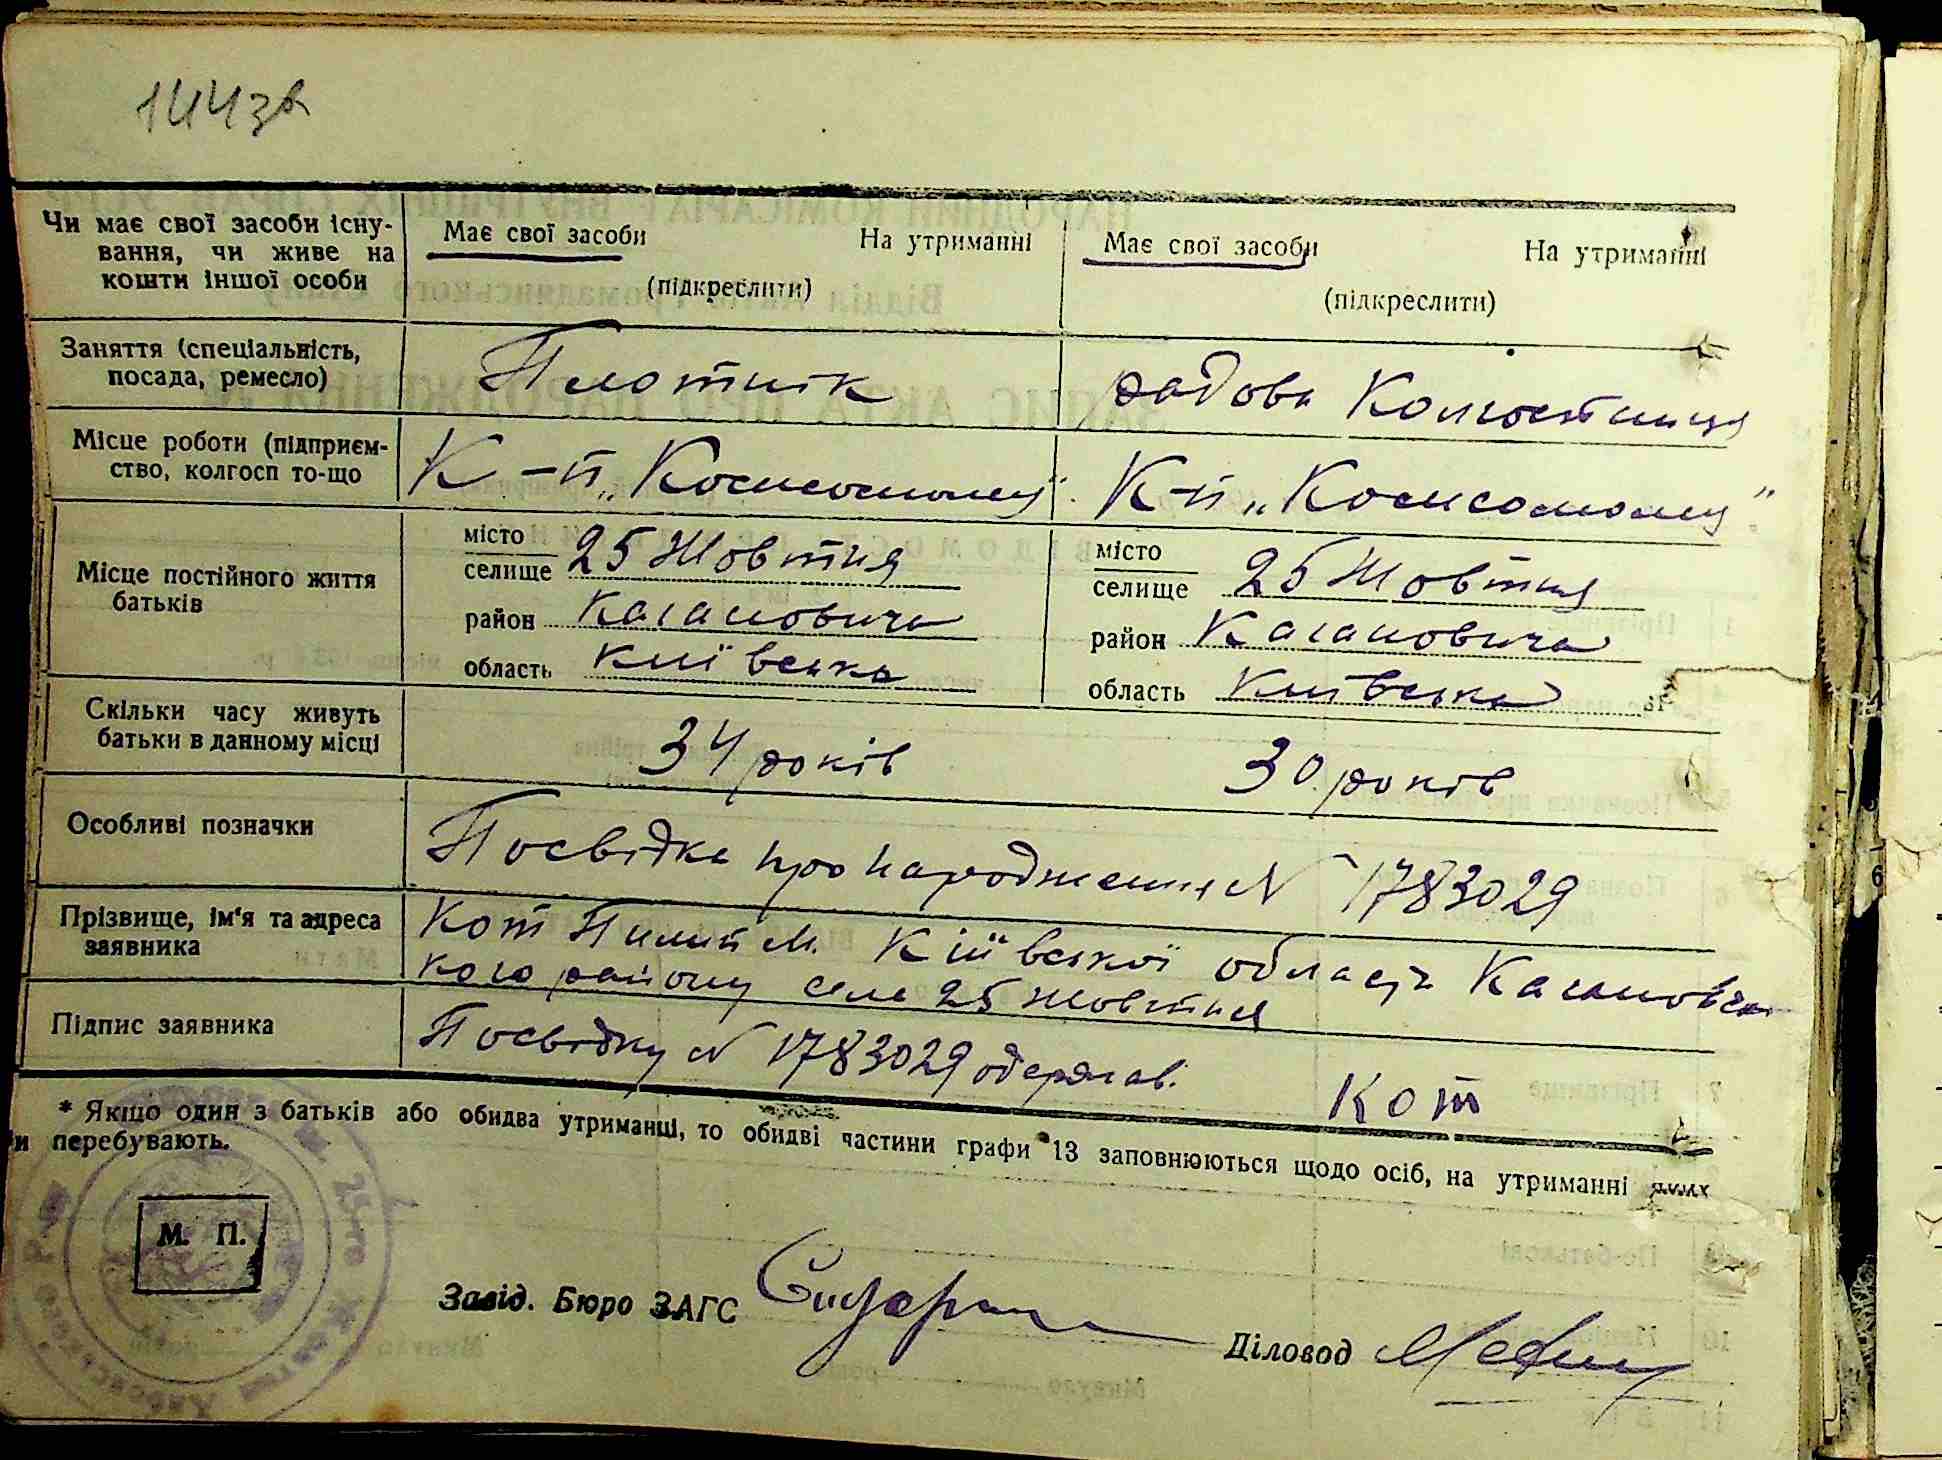 144зв
Чи має свої засоби існу-
вання, чи живе на
кошти іншої особи
Має свої засоби На утриманні
(підкреслити)
Має свої засоби На утриманні
(підкреслити)
Заняття (спеціальність,
посада, ремесло)
Плотник
радова Колгостниця
Місце роботи (підприєм-
ство, колгосп то-що
К-п „Комсомолець"
К-п „Комсомолець"
Місце постійного життя
батьків
місто
селище 25 Жовтня
район Кагановича
область Київська
місто
селище 25 Жовтня
район Кагановича
область Київська
Скільки часу живуть
батьки в данному місці
34 років
30 років
Особливі позначки
Посвідка про народження № 1783029
Прізвище, ім'я та адреса
заявника
Кот Пилип М. Київської області Кагановичс
кого району село 25 Жовтня
Підпис заявника
Посвідку № 1783029 одержав.
Кот
* Якщо один з батьків або обидва утриманці, то обидві частини графи 13 заповнюються щодо осіб, на утриманні яких
и перебувають.
М. П.
Завід. Бюро ЗАГС
Діловод